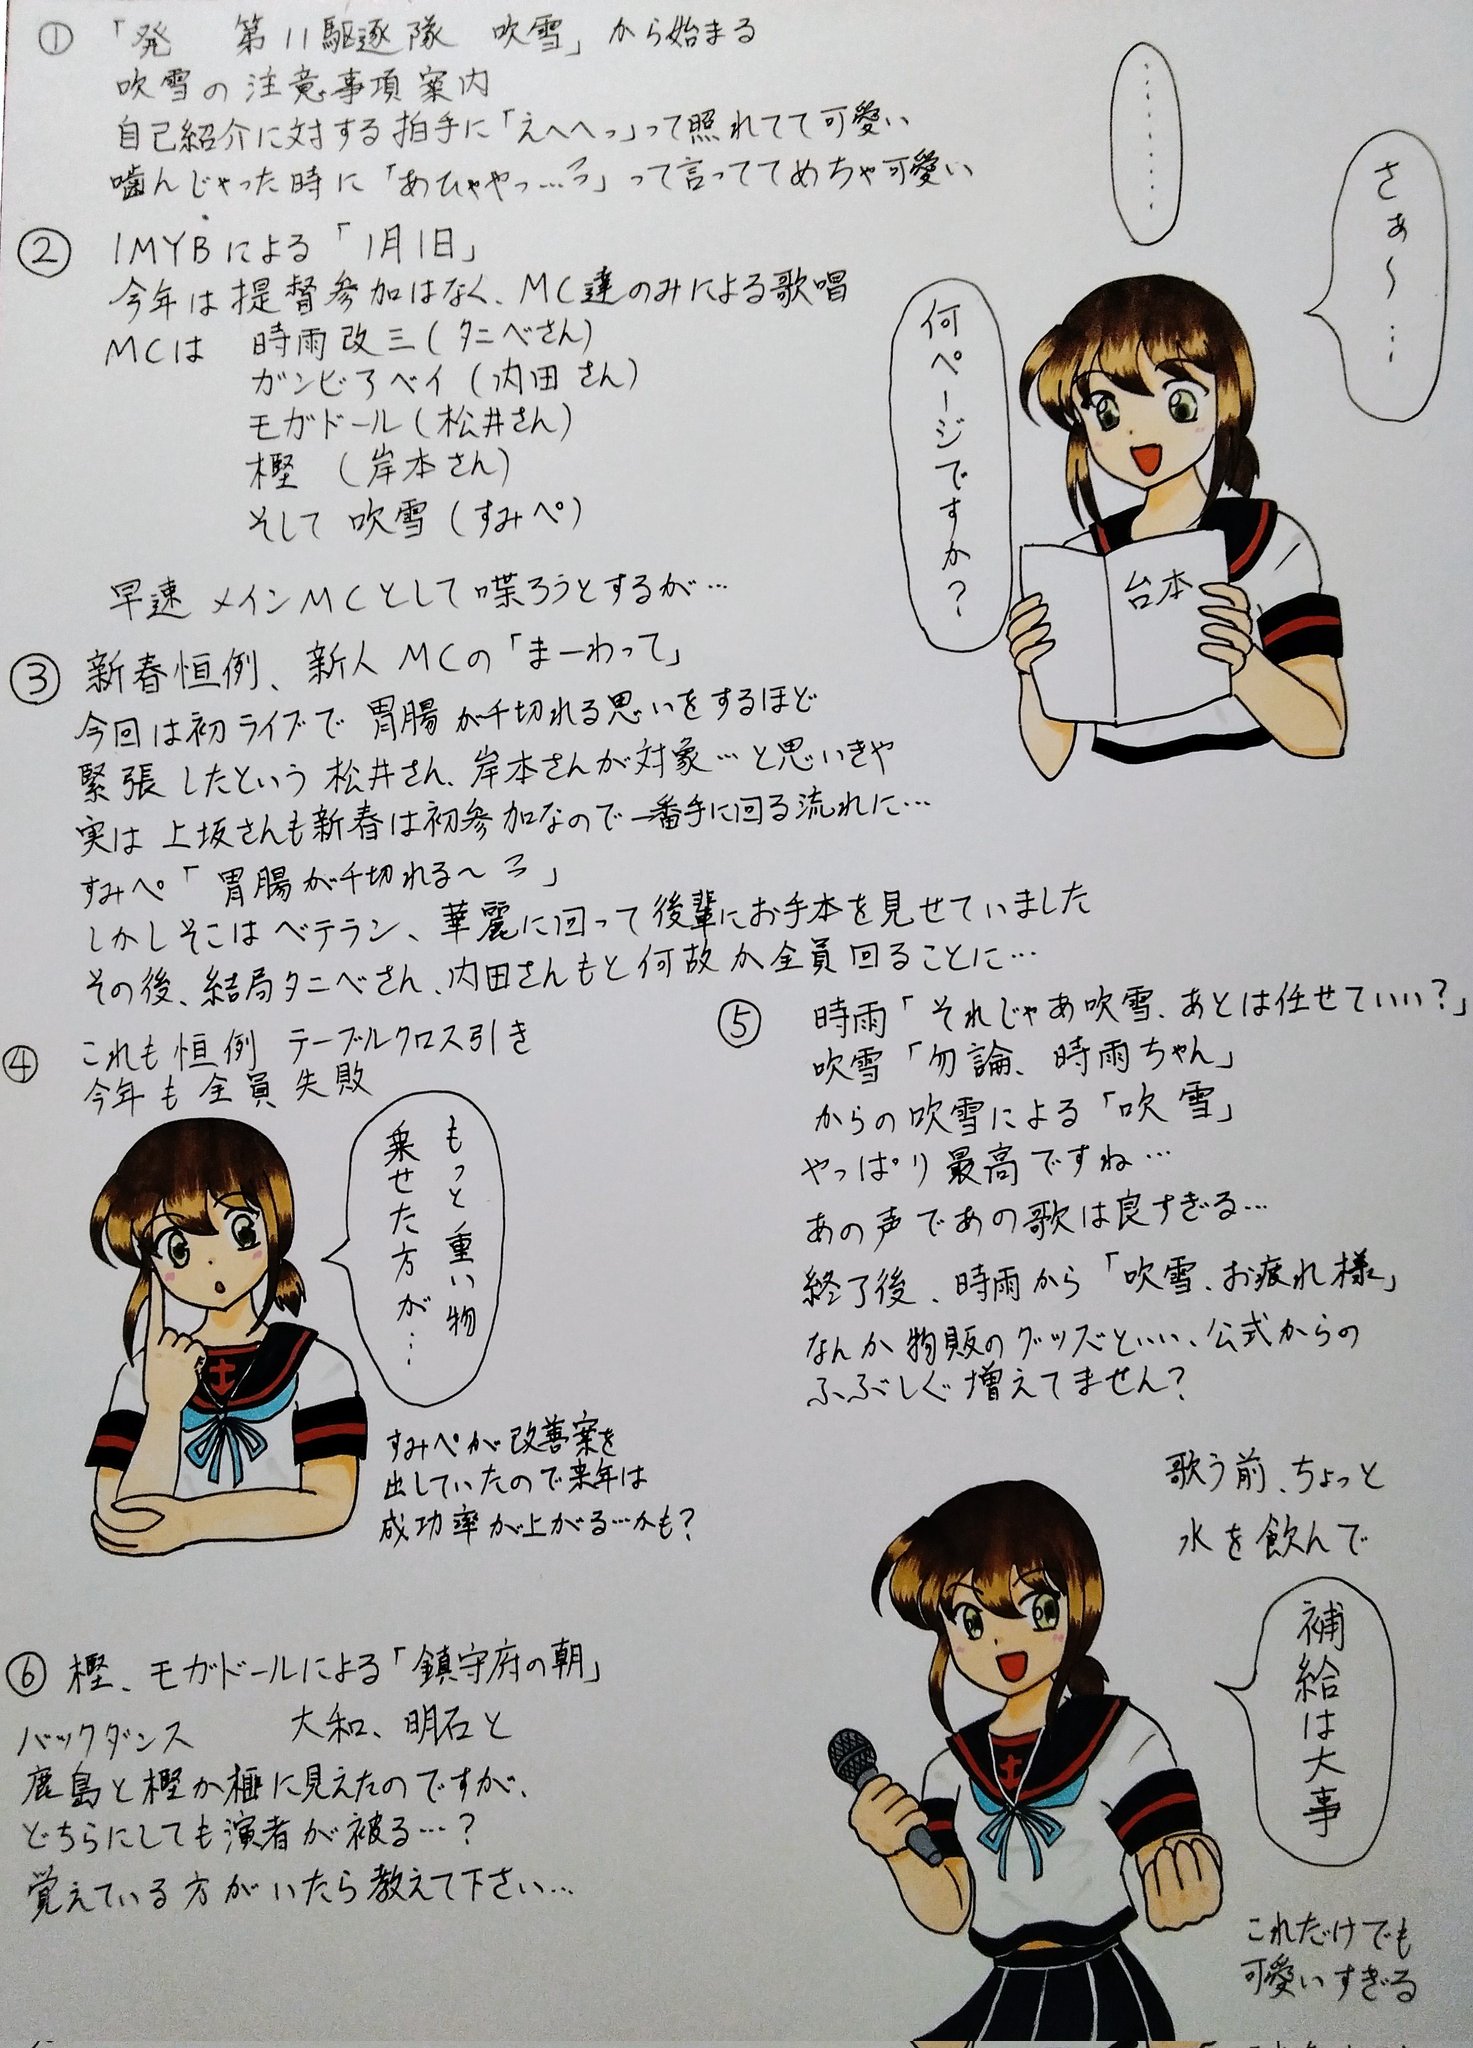 ① 「発 第11駆逐隊 吹雪」から始まる
吹雪の注意事項案内
自己紹介に対する拍手に「えへへっ」って照れてて可愛い
噛んじゃった時に「あひゃやっ…ろ」って言っててめちゃ可愛い
② 1MYBによる「1月1日」
今年は提督参加はなく、MC達のみによる歌唱
MCは 時雨改三(タニベさん)
ガンビアベイ(内田さん)
モガドール(松井さん)
樫 (岸本さん)
そして 吹雪(すみぺ)
早速メインMCとして喋ろうとするが…
さぁ〜…
………
何ページですか?
台本
③ 新春恒例、新人MCの「まーわって」
今回は初ライブで胃腸が千切れる思いをするほど
緊張したという松井さん、岸本さんが対象…と思いきや
実は上坂さんも新春は初参加なので一番手に回る流れに…
すみぺ「胃腸が千切れる〜ろ」
しかしそこはベテラン、華麗に回って後輩にお手本を見せていました
その後、結局タニベさん、内田さんもと何故か全員回ることに…
④ これも恒例 テーブルクロス引き
今年も全員失敗
もっと重い物
乗せた方が…
すみぺが改善案を
出していたので来年は
成功率が上がる…かも?
⑤ 時雨「それじゃあ吹雪、あとは任せていい?」
吹雪「勿論、時雨ちゃん」
からの吹雪による「吹雪」
やっぱり最高ですね…
あの声であの歌は良すぎる…
終了後、時雨から「吹雪、お疲れ様」
なんか物販のグッズといい、公式からの
ふぶしぐ増えてません?
歌う前、ちょっと
水を飲んで
補給は大事
これだけでも
可愛いすぎる
⑥ 樫、モガドールによる「鎮守府の朝」
バックダンス 大和、明石と
鹿島と樫か榧に見えたのですが、
どちらにしても演者が被る…?
覚えている方がいたら教えて下さい…